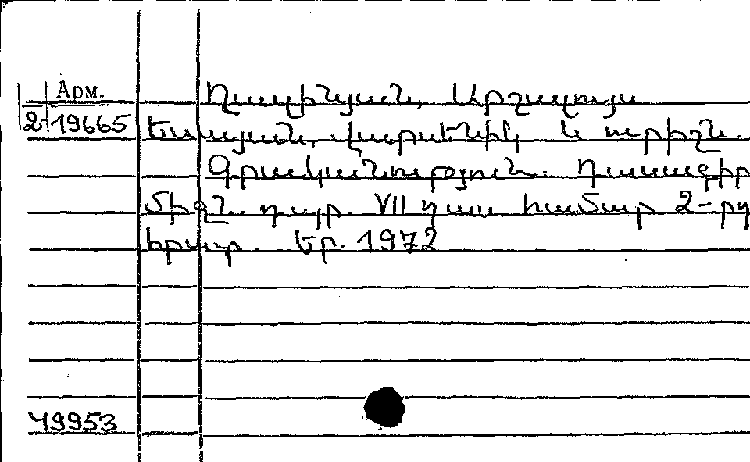 Арм.
Ղափինյան, Արշալույս
2-19665 Եսայան, Վարսենիկ և ուրիշն.
Գրականություն. Դասագիրք
միջն. դպր. VII դաս համար 2-րդ
հրատ. Եր. 1972
49953